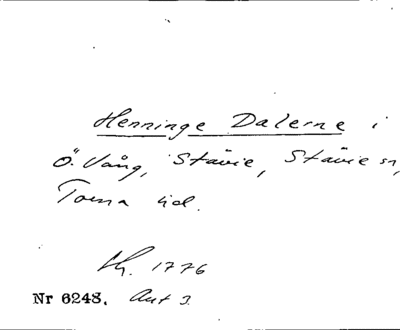 Henninge Dalerne i
Ö. Vång, Stävie, Stävie sn,
Torna hd.
1776
Nr 6248. Akt 3.